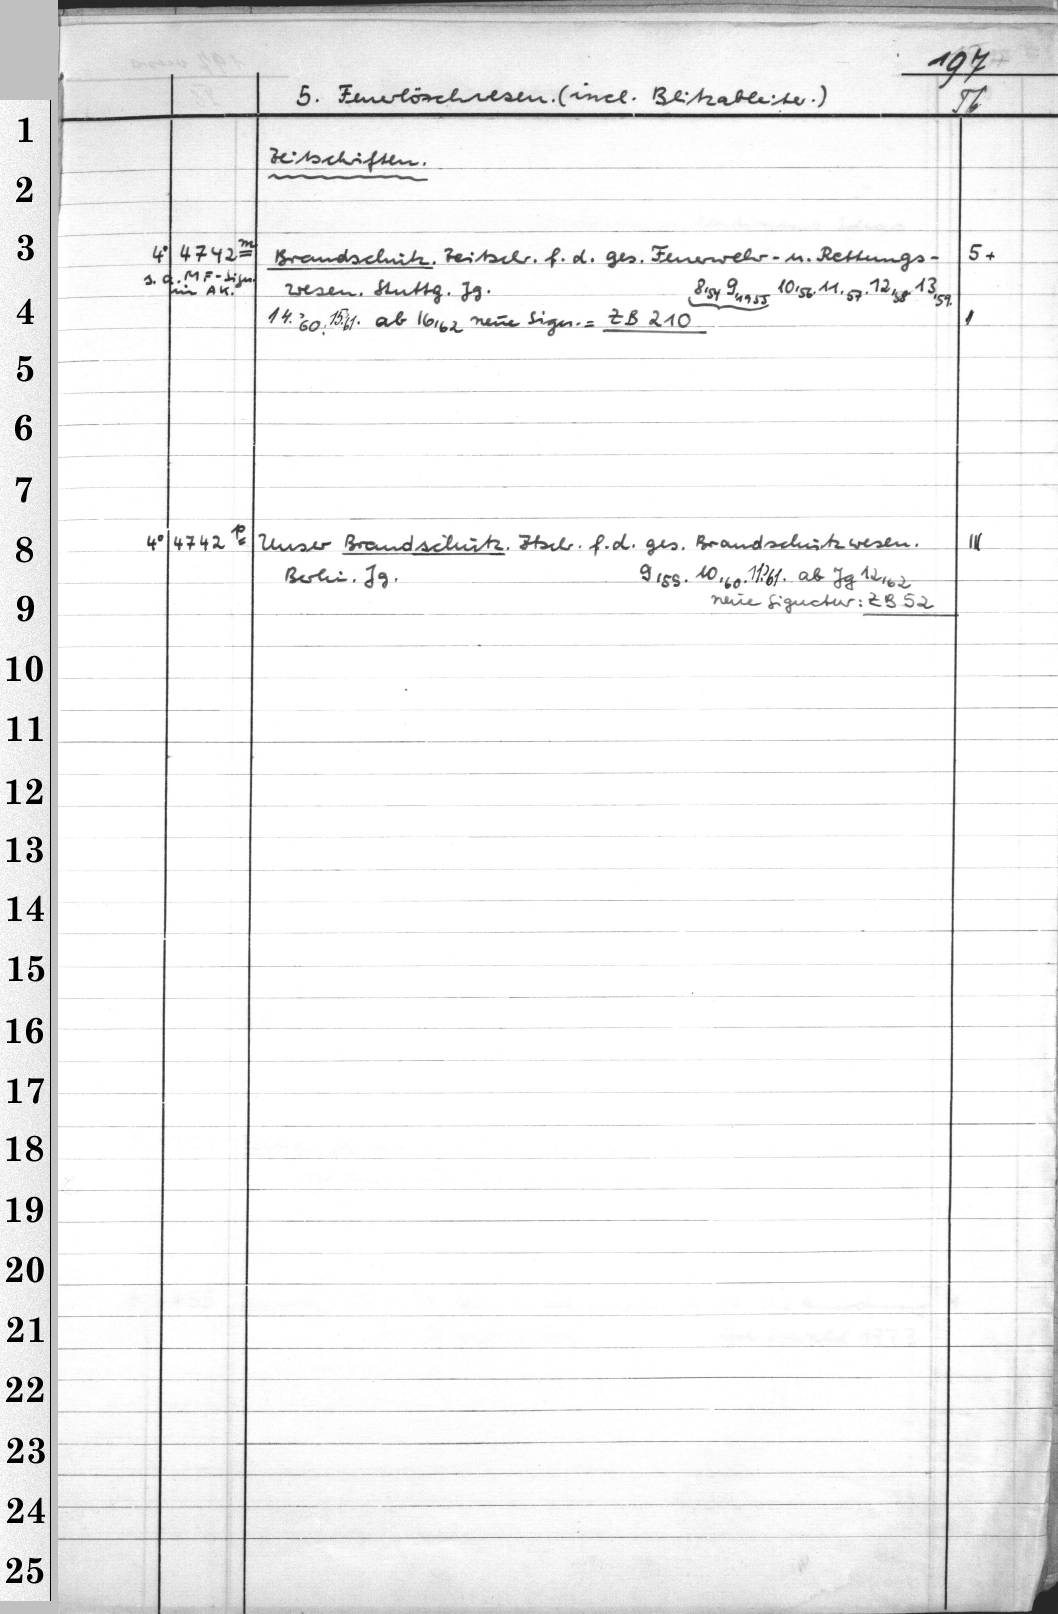 197
5. Feuerlöschwesen. (incl. Blitzableiter.)
1
Zeitschriften.
2
3
4° 4742 m Brandschutz. Zeitschr. f. d. ges. Feuerwehr- u. Rettungs- 5+
s. a. MF-Sign. wesen. Stuttg. Jg. 8,54 9,1955 10,56. 11,57. 12,58. 13,59.
im AK.
4
14.'60. 15'61. ab 16,62 neue Sign. = ZB 210 I
5
6
7
8
4° 4742 p Unser Brandschutz. Ztschr. f. d. ges. Brandschutzwesen. III
Berlin. Jg. 9,59. 10,60. 11'61. ab Jg 12,62
9
neue Signatur: ZB 52
10
11
12
13
14
15
16
17
18
19
20
21
22
23
24
25